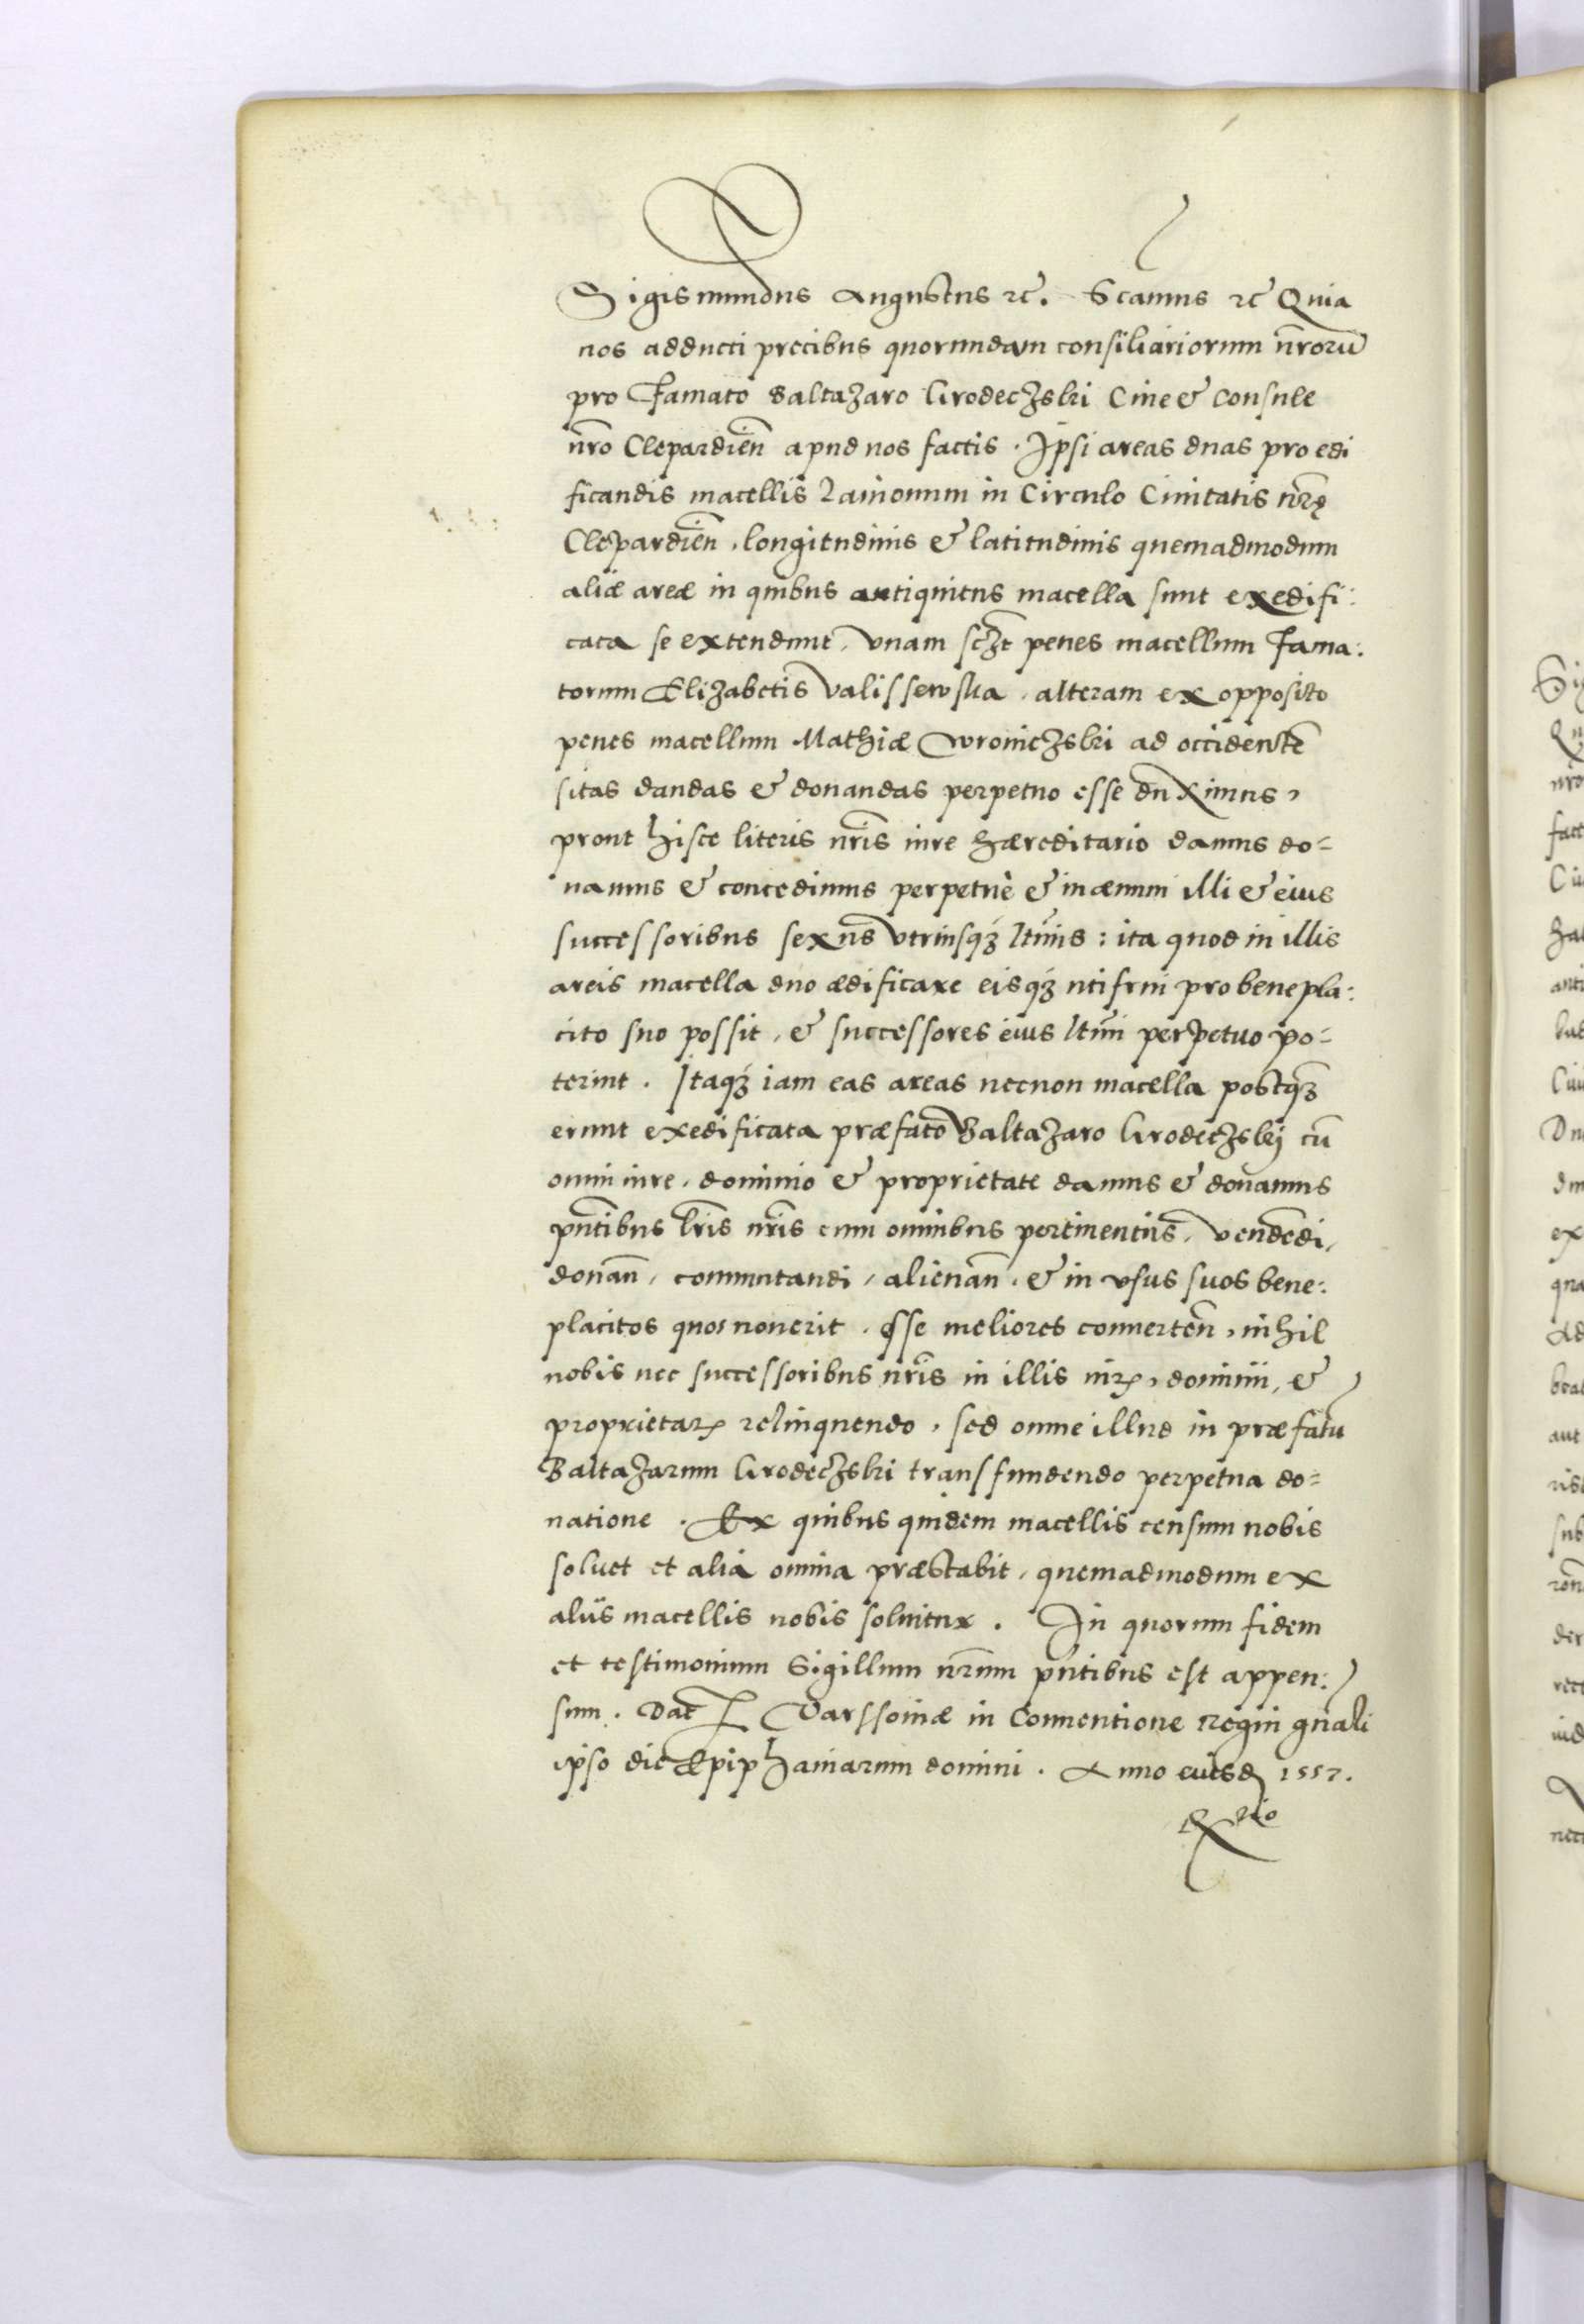 Sigismundus Augustus ꝛc̃. Scamus ꝛc̃ Quia
nos adducti precibus quorundam consiliariorum nr̃orũ
pro Famato Baltazaro Grodeczski Ciue & Consule
nr̃o Clepardien̄ apud nos factis. Ipsi areas duas pro edi
ficandis macellis Lanionum in Circulo Ciuitatis nr̃ę
Clepardien̄, longitudinis & latitudinis quemadmodum
aliæ areæ in quibus antiquitus macella sunt exedifi:
cata se extendunt, vnam sczt̃ penes macellum Fama:
torum Elizabetis Valissewska, alteram ex opposito
penes macellum Mathiæ Wroniczski ad occidentẽ
sitas dandas & donandas perpetuo esse duximus,
prout hisce literis nr̃is iure hæreditario damus do=
namus & concedimus perpetuè & inæuum illi & eius
successoribus sexus vtriusqȝ ltimis: ita quod in illis
areis macella duo ædificare eisqȝ uti frui pro benepla:
cito suo possit, & successores eius ltimi perpetuo po=
terint. Itaqȝ iam eas areas necnon macella postqȝ
erunt exedificata præfato Baltazaro Grodeczskj cũ
omni iure, dominio & proprietate damus & donamus
pn̄tibus lr̃is nr̃is cum omnibus pertinentiis, vendẽdi,
donan̄, commutandi, alienan̄, & in vsus suos bene:
placitos quos nouerit, esse meliores conuerten̄, nihil
nobis nec successoribus nr̃is in illis iurꝫ, dominii, &
proprietarꝫ relinquendo, sed omne illud in præfatũ
Baltazarum Grodeczski transfundendo perpetua do=
natione. Ex quibus quidem macellis censum nobis
soluet et alia omnia præstabit, quemadmodum ex
aliis macellis nobis soluitur. In quorum fidem
et testimonium Sigillum nr̃um pn̄tibus est appen:
sum. Dat̃ Varssouiæ in Conuentione Regni gn̄ali
ipso die Æpiphaniarum domini. Anno eiusd 1557.
Rtio